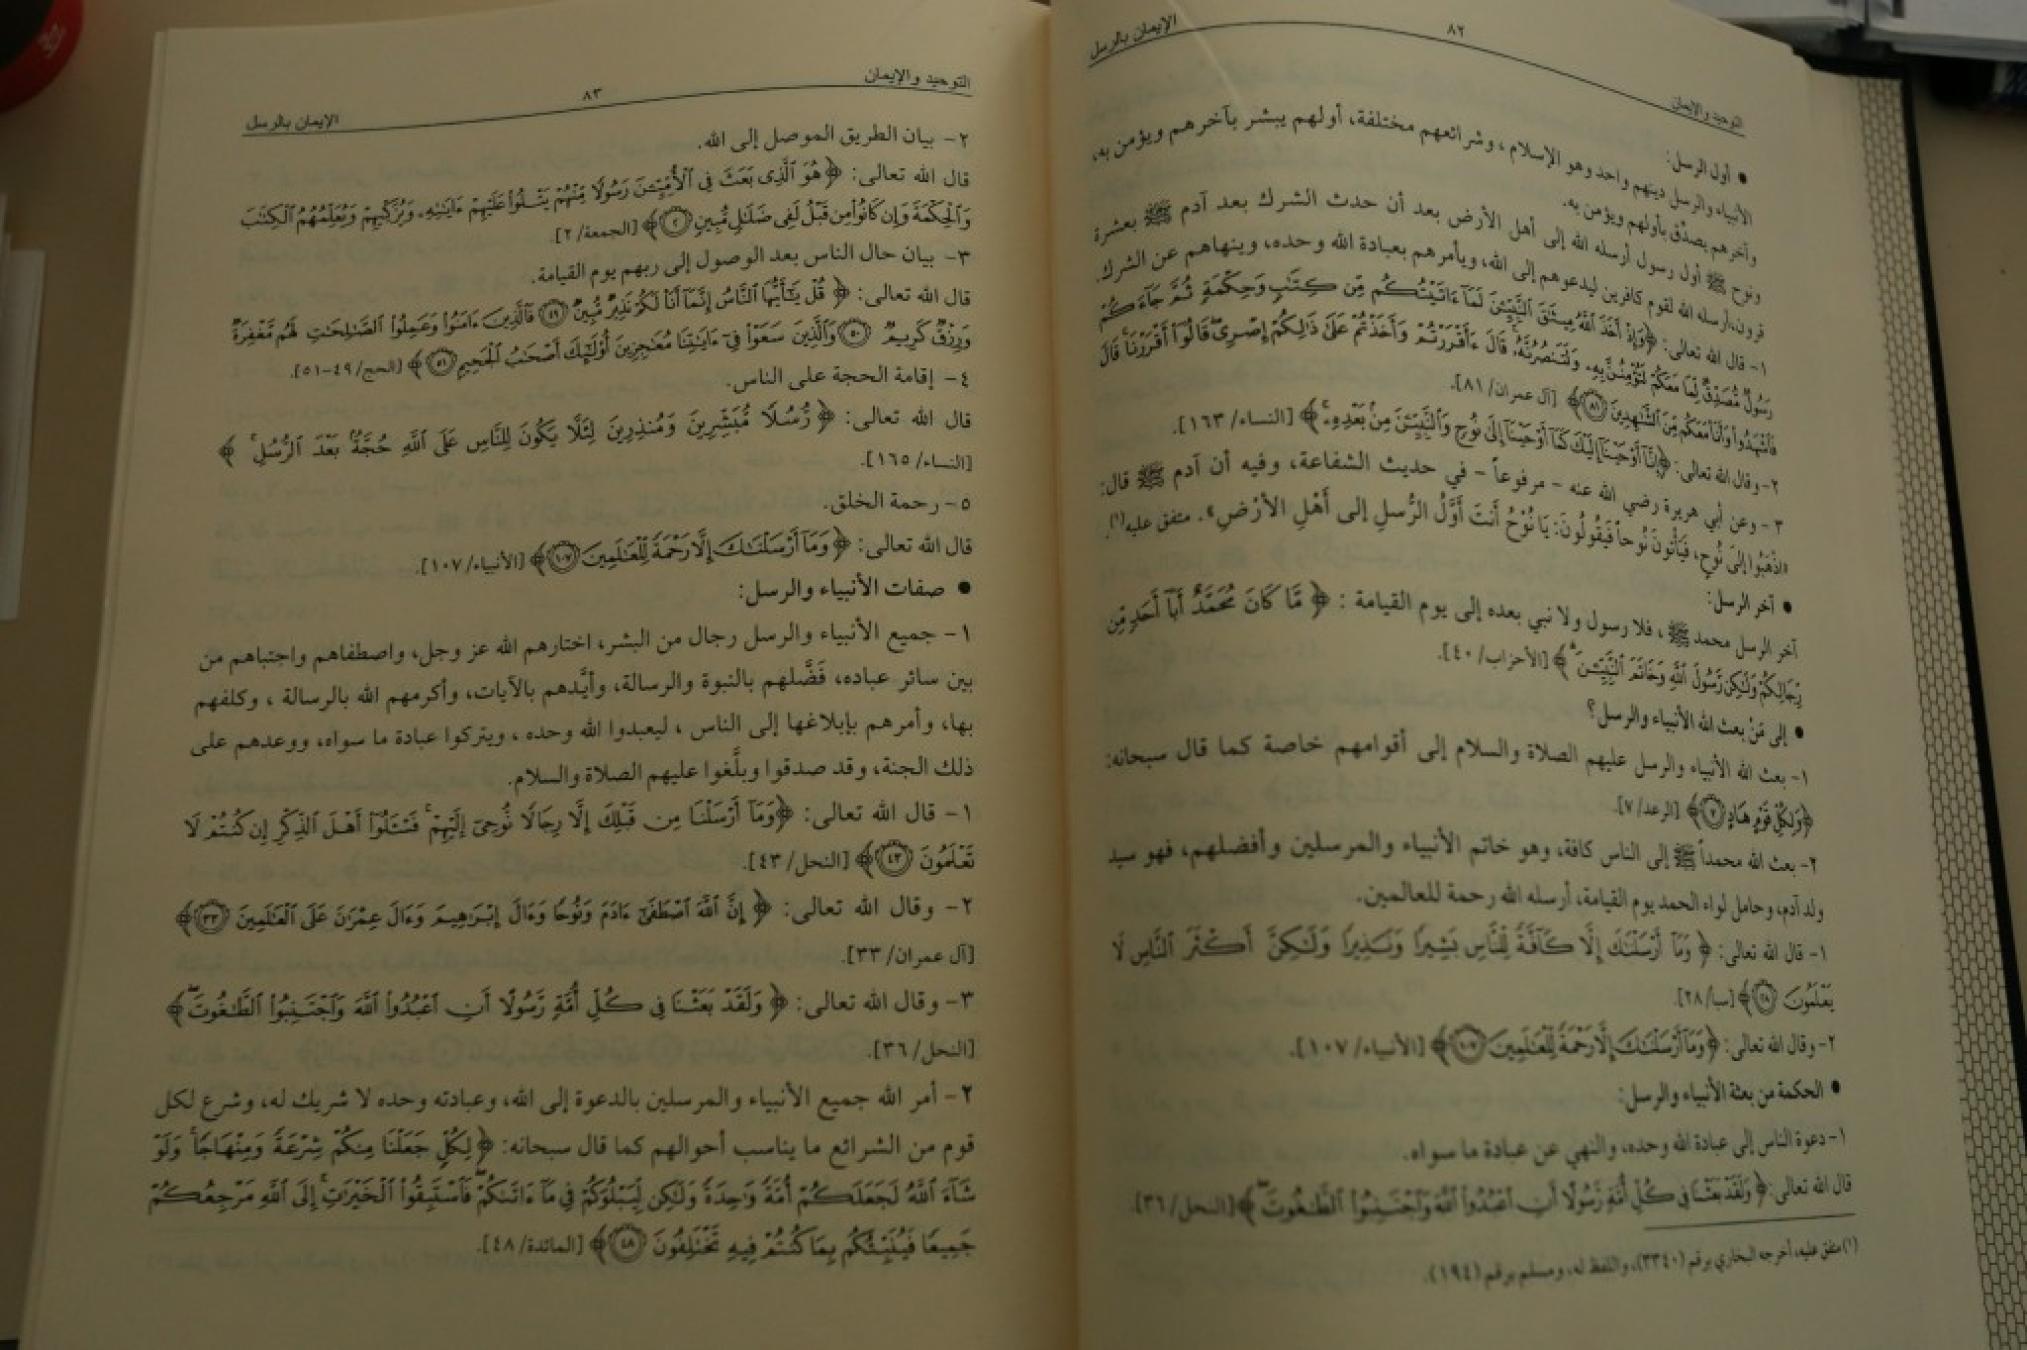 التوحيد والإيمان ٨٢ الإيمان بالرسل
• أول الرسل:
الأنبياء والرسل دينهم واحد وهو الإسلام، وشرائعهم مختلفة، أولهم يبشر بآخرهم ويؤمن به،
وآخرهم يصدِّق بأولهم ويؤمن به.
ونوح ﷺ أول رسول أرسله الله إلى أهل الأرض بعد أن حدث الشرك بعد آدم ﷺ بعشرة
قرون، أرسله الله لقوم كافرين ليدعوهم إلى الله، ويأمرهم بعبادة الله وحده، وينهاهم عن الشرك.
١- قال الله تعالى: ﴿وَإِذْ أَخَذَ ٱللَّهُ مِيثَٰقَ ٱلنَّبِيِّـۧنَ لَمَآ ءَاتَيْتُكُم مِّن كِتَٰبٍ وَحِكْمَةٍ ثُمَّ جَآءَكُمْ
رَسُولٌ مُّصَدِّقٌ لِّمَا مَعَكُمْ لَتُؤْمِنُنَّ بِهِۦ وَلَتَنصُرُنَّهُۥ قَالَ ءَأَقْرَرْتُمْ وَأَخَذْتُمْ عَلَىٰ ذَٰلِكُمْ إِصْرِى قَالُوٓا۟ أَقْرَرْنَا قَالَ
فَٱشْهَدُوا۟ وَأَنَا۠ مَعَكُم مِّنَ ٱلشَّٰهِدِينَ ٨١﴾ [آل عمران/ ٨١].
٢- وقال الله تعالى: ﴿إِنَّآ أَوْحَيْنَآ إِلَيْكَ كَمَآ أَوْحَيْنَآ إِلَىٰ نُوحٍ وَٱلنَّبِيِّـۧنَ مِنۢ بَعْدِهِۦ﴾ [النساء/ ١٦٣].
٣- وعن أبي هريرة رضي الله عنه - مرفوعاً - في حديث الشفاعة، وفيه أن آدم ﷺ قال:
«اذْهَبُوا إلىَ نُوحٍ، فَيَأْتُونَ نُوحاً فَيَقُولُونَ: يَا نُوْحُ أَنتَ أَوَّلُ الرُّسلِ إلى أَهْلِ الأرْضِ». متفق عليه(١).
• آخر الرسل:
آخر الرسل محمد ﷺ، فلا رسول ولا نبي بعده إلى يوم القيامة: ﴿مَّا كَانَ مُحَمَّدٌ أَبَآ أَحَدٍ مِّن
رِّجَالِكُمْ وَلَٰكِن رَّسُولَ ٱللَّهِ وَخَاتَمَ ٱلنَّبِيِّـۧنَ﴾ [الأحزاب/ ٤٠].
• إلى مَنْ بعث الله الأنبياء والرسل؟
١- بعث الله الأنبياء والرسل عليهم الصلاة والسلام إلى أقوامهم خاصة كما قال سبحانه:
﴿وَلِكُلِّ قَوْمٍ هَادٍ ٧﴾ [الرعد/ ٧].
٢- بعث الله محمداً ﷺ إلى الناس كافة، وهو خاتم الأنبياء والمرسلين وأفضلهم، فهو سيد
ولد آدم، وحامل لواء الحمد يوم القيامة، أرسله الله رحمة للعالمين.
١- قال الله تعالى: ﴿وَمَآ أَرْسَلْنَٰكَ إِلَّا كَآفَّةً لِّلنَّاسِ بَشِيرًا وَنَذِيرًا وَلَٰكِنَّ أَكْثَرَ ٱلنَّاسِ لَا
يَعْلَمُونَ ٢٨﴾ [سبأ/ ٢٨].
٢- وقال الله تعالى: ﴿وَمَآ أَرْسَلْنَٰكَ إِلَّا رَحْمَةً لِّلْعَٰلَمِينَ ١٠٧﴾ [الأنبياء/ ١٠٧].
• الحكمة من بعثة الأنبياء والرسل:
١- دعوة الناس إلى عبادة الله وحده، والنهي عن عبادة ما سواه.
قال الله تعالى: ﴿وَلَقَدْ بَعَثْنَا فِى كُلِّ أُمَّةٍ رَّسُولًا أَنِ ٱعْبُدُوا۟ ٱللَّهَ وَٱجْتَنِبُوا۟ ٱلطَّٰغُوتَ﴾ [النحل/ ٣٦].
(١) متفق عليه، أخرجه البخاري برقم (٣٣٤٠)، واللفظ له، ومسلم برقم (١٩٤).
التوحيد والإيمان ٨٣ الإيمان بالرسل
٢- بيان الطريق الموصل إلى الله.
قال الله تعالى: ﴿هُوَ ٱلَّذِى بَعَثَ فِى ٱلْأُمِّيِّـۧنَ رَسُولًا مِّنْهُمْ يَتْلُوا۟ عَلَيْهِمْ ءَايَٰتِهِۦ وَيُزَكِّيهِمْ وَيُعَلِّمُهُمُ ٱلْكِتَٰبَ
وَٱلْحِكْمَةَ وَإِن كَانُوا۟ مِن قَبْلُ لَفِى ضَلَٰلٍ مُّبِينٍ ٢﴾ [الجمعة/ ٢].
٣- بيان حال الناس بعد الوصول إلى ربهم يوم القيامة.
قال الله تعالى: ﴿قُلْ يَٰٓأَيُّهَا ٱلنَّاسُ إِنَّمَآ أَنَا۠ لَكُمْ نَذِيرٌ مُّبِينٌ ٤٩ فَٱلَّذِينَ ءَامَنُوا۟ وَعَمِلُوا۟ ٱلصَّٰلِحَٰتِ لَهُم مَّغْفِرَةٌ
وَرِزْقٌ كَرِيمٌ ٥٠ وَٱلَّذِينَ سَعَوْا۟ فِىٓ ءَايَٰتِنَا مُعَٰجِزِينَ أُو۟لَٰٓئِكَ أَصْحَٰبُ ٱلْجَحِيمِ ٥١﴾ [الحج/ ٤٩-٥١].
٤- إقامة الحجة على الناس.
قال الله تعالى: ﴿رُّسُلًا مُّبَشِّرِينَ وَمُنذِرِينَ لِئَلَّا يَكُونَ لِلنَّاسِ عَلَى ٱللَّهِ حُجَّةٌۢ بَعْدَ ٱلرُّسُلِ﴾
[النساء/ ١٦٥].
٥- رحمة الخلق.
قال الله تعالى: ﴿وَمَآ أَرْسَلْنَٰكَ إِلَّا رَحْمَةً لِّلْعَٰلَمِينَ ١٠٧﴾ [الأنبياء/ ١٠٧].
• صفات الأنبياء والرسل:
١- جميع الأنبياء والرسل رجال من البشر، اختارهم الله عز وجل، واصطفاهم واجتباهم من
بين سائر عباده، فَضَّلهم بالنبوة والرسالة، وأيَّدهم بالآيات، وأكرمهم الله بالرسالة، وكلفهم
بها، وأمرهم بإبلاغها إلى الناس، ليعبدوا الله وحده، ويتركوا عبادة ما سواه، ووعدهم على
ذلك الجنة، وقد صدقوا وبلَّغوا عليهم الصلاة والسلام.
١- قال الله تعالى: ﴿وَمَآ أَرْسَلْنَا مِن قَبْلِكَ إِلَّا رِجَالًا نُّوحِىٓ إِلَيْهِمْ فَسْـَٔلُوٓا۟ أَهْلَ ٱلذِّكْرِ إِن كُنتُمْ لَا
تَعْلَمُونَ ٤٣﴾ [النحل/ ٤٣].
٢- وقال الله تعالى: ﴿إِنَّ ٱللَّهَ ٱصْطَفَىٰٓ ءَادَمَ وَنُوحًا وَءَالَ إِبْرَٰهِيمَ وَءَالَ عِمْرَٰنَ عَلَى ٱلْعَٰلَمِينَ ٣٣﴾
[آل عمران/ ٣٣].
٣- وقال الله تعالى: ﴿وَلَقَدْ بَعَثْنَا فِى كُلِّ أُمَّةٍ رَّسُولًا أَنِ ٱعْبُدُوا۟ ٱللَّهَ وَٱجْتَنِبُوا۟ ٱلطَّٰغُوتَ﴾
[النحل/ ٣٦].
٢- أمر الله جميع الأنبياء والمرسلين بالدعوة إلى الله، وعبادته وحده لا شريك له، وشرع لكل
قوم من الشرائع ما يناسب أحوالهم كما قال سبحانه: ﴿لِكُلٍّ جَعَلْنَا مِنكُمْ شِرْعَةً وَمِنْهَاجًا وَلَوْ
شَآءَ ٱللَّهُ لَجَعَلَكُمْ أُمَّةً وَٰحِدَةً وَلَٰكِن لِّيَبْلُوَكُمْ فِى مَآ ءَاتَىٰكُمْ فَٱسْتَبِقُوا۟ ٱلْخَيْرَٰتِ إِلَى ٱللَّهِ مَرْجِعُكُمْ
جَمِيعًا فَيُنَبِّئُكُم بِمَا كُنتُمْ فِيهِ تَخْتَلِفُونَ ٤٨﴾ [المائدة/ ٤٨].